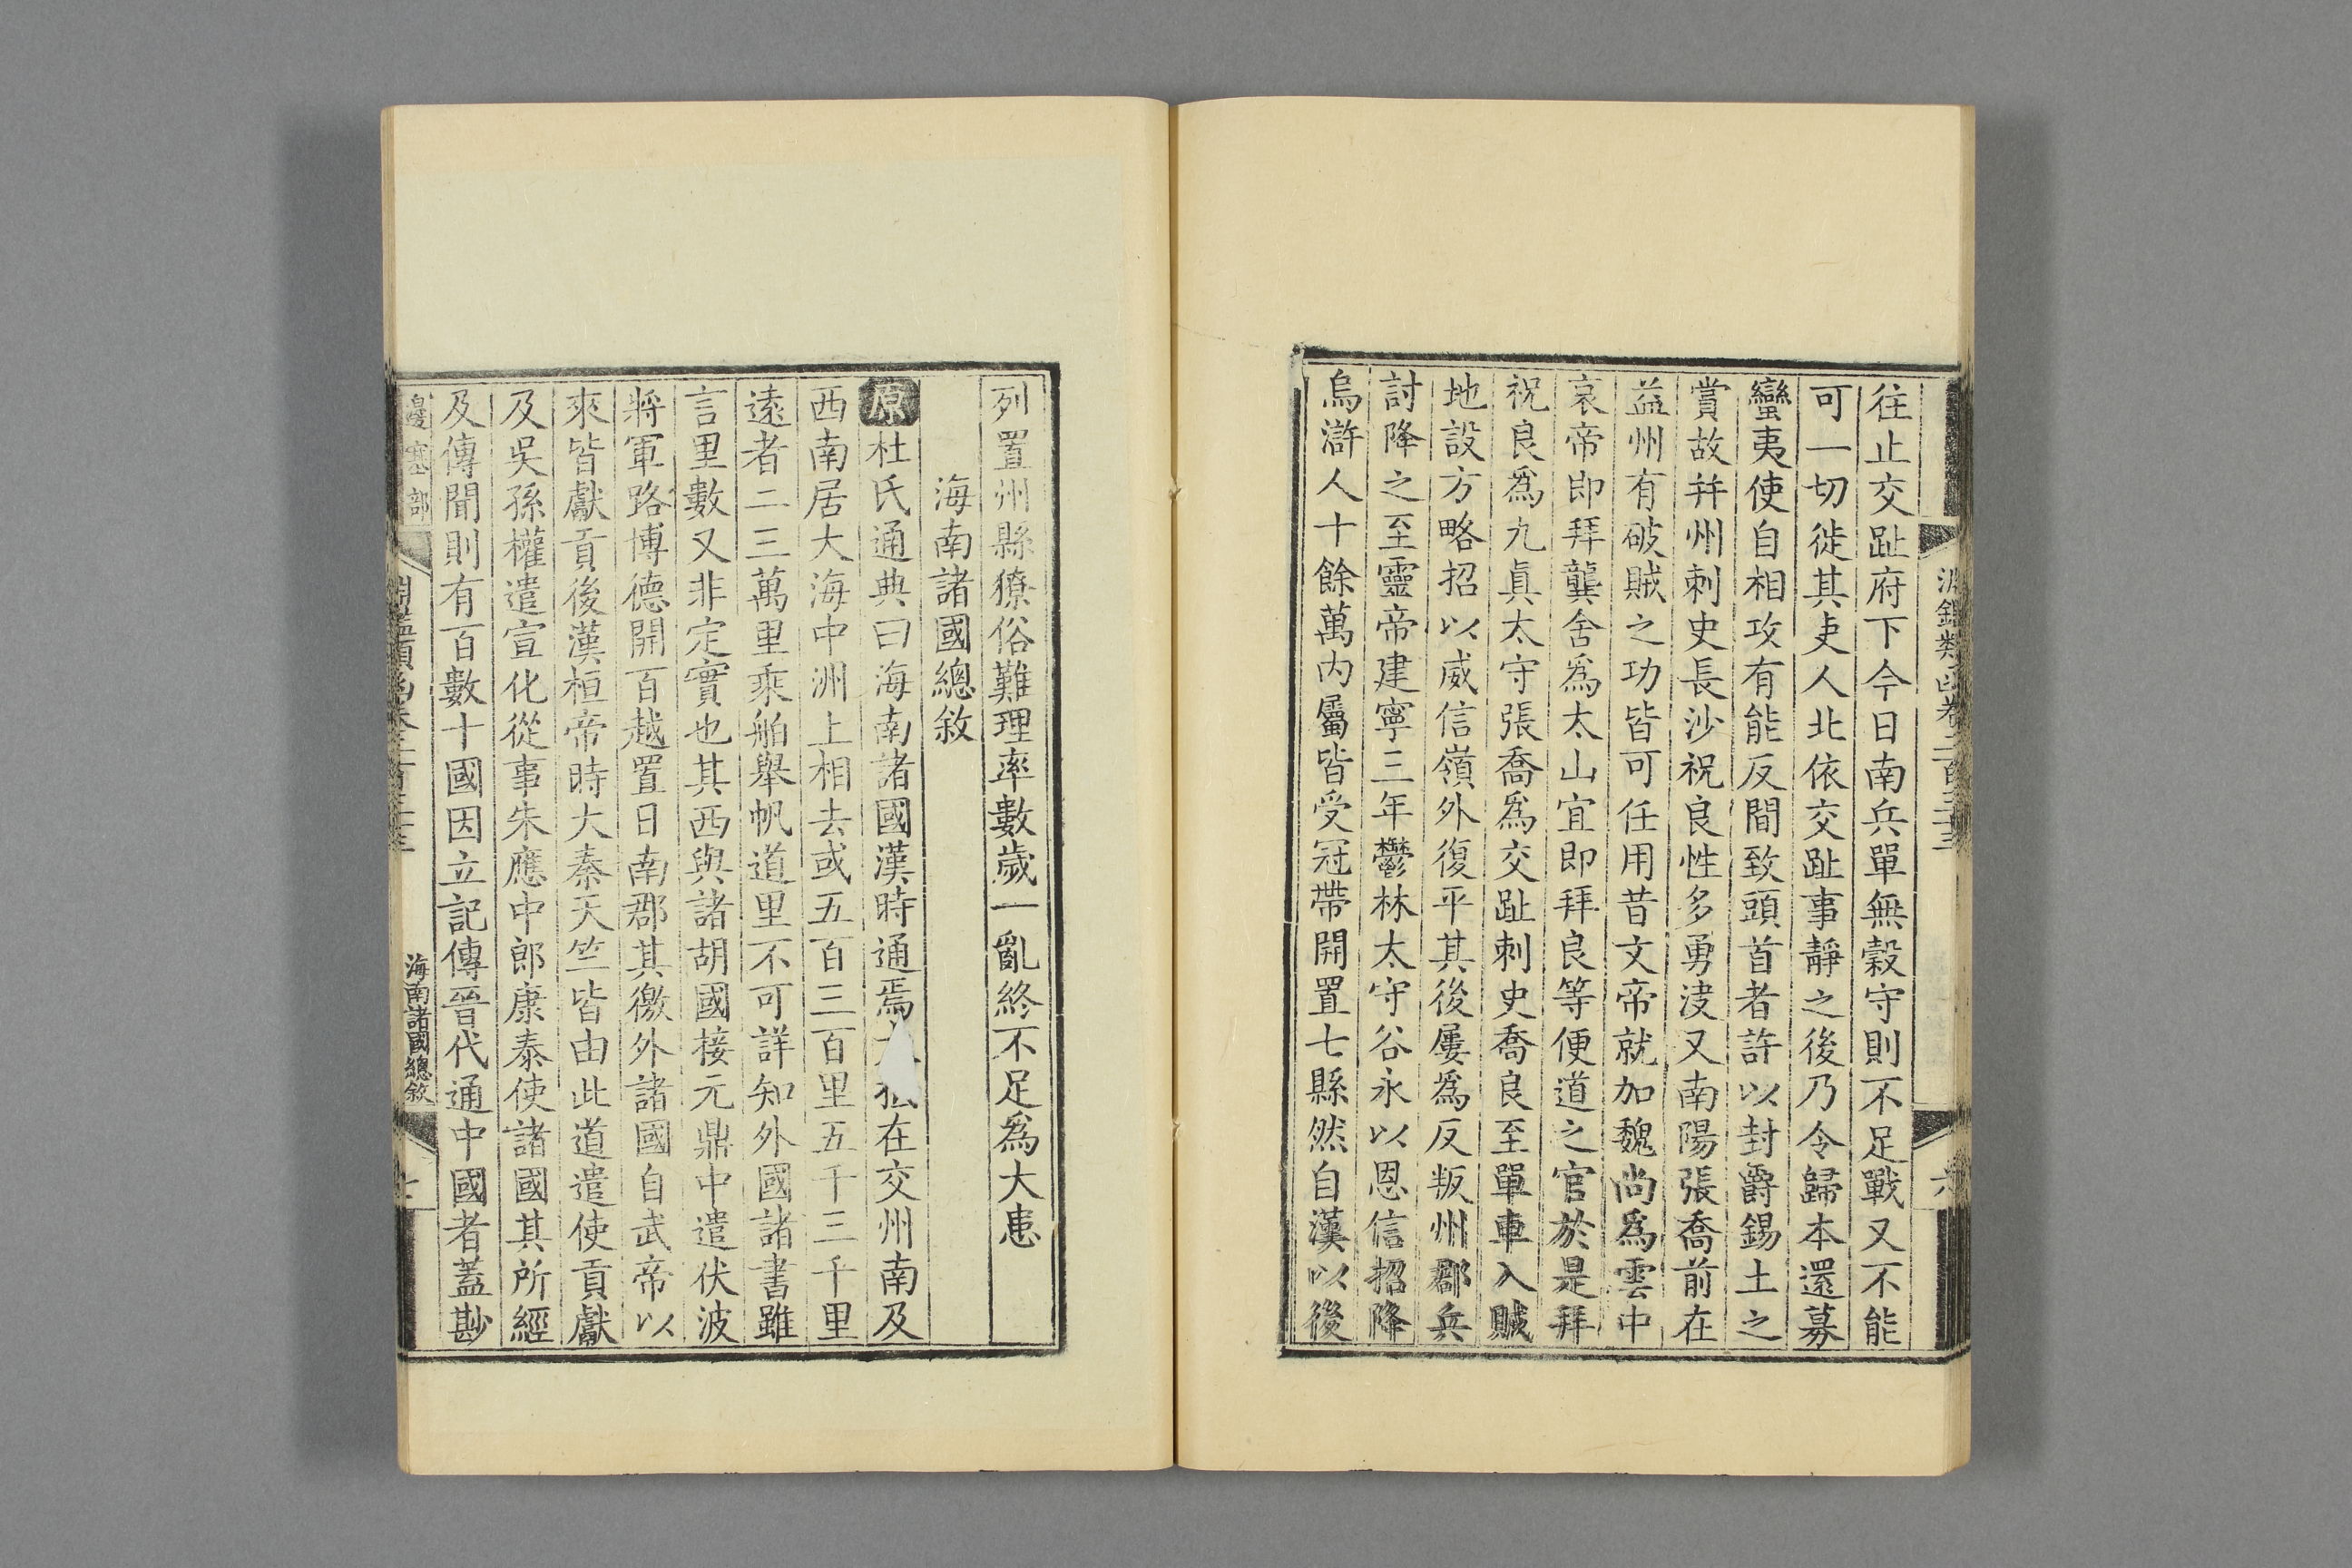 往止交趾府下今日南兵單無穀守則不足戰又不能
可一切徙其吏人北依交趾事靜之後乃令歸本還募
蠻夷使自相攻有能反間致頭首者許以封爵錫土之
賞故幷州刺史長沙祝良性多勇決又南陽張喬前在
益州有破賊之功皆可任用昔文帝就加魏尚為雲中
哀帝即拜龔舍為太山宜即拜良等便道之官於是拜
祝良為九眞太守張喬為交趾刺史喬良至單車入賊
地設方略招以威信嶺外復平其後屢為反叛州郡兵
討降之至靈帝建寧三年鬱林太守谷永以恩信招降
烏滸人十餘萬內屬皆受冠帶開置七縣然自漢以後
列置州縣獠俗難理率數歲一亂終不足為大患
海南諸國總敘
原杜氏通典曰海南諸國漢時通焉大抵在交州南及
西南居大海中洲上相去或五百三百里五千三千里
遠者二三萬里乘舶舉帆道里不可詳知外國諸書雖
言里數又非定實也其西與諸胡國接元鼎中遣伏波
將軍路博德開百越置日南郡其徼外諸國自武帝以
來皆獻貢後漢桓帝時大秦天竺皆由此道遣使貢獻
及吳孫權遣宣化從事朱應中郎康泰使諸國其所經
及傳聞則有百數十國因立記傳晉代通中國者蓋尠
邊塞部
海南諸國總敘